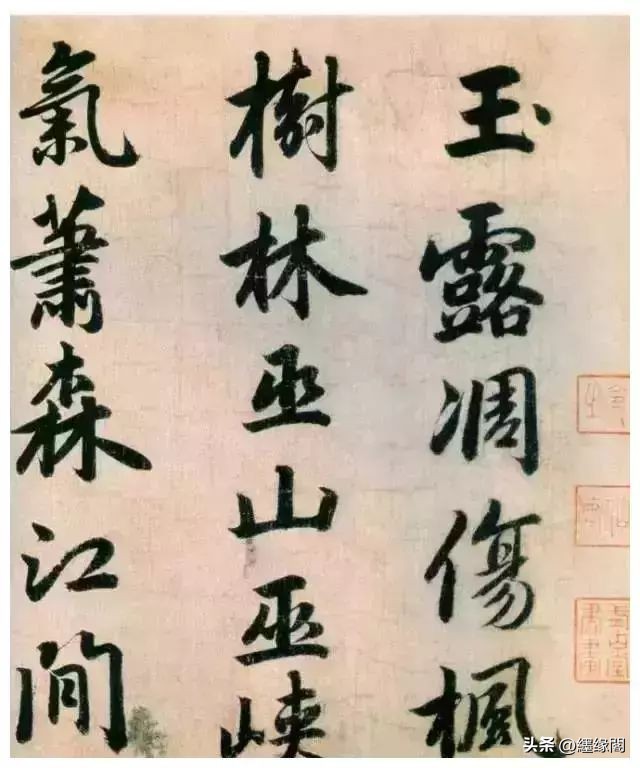 玉露凋傷楓
樹林巫山巫峽
氣蕭森江間
头条 @纆缘閣